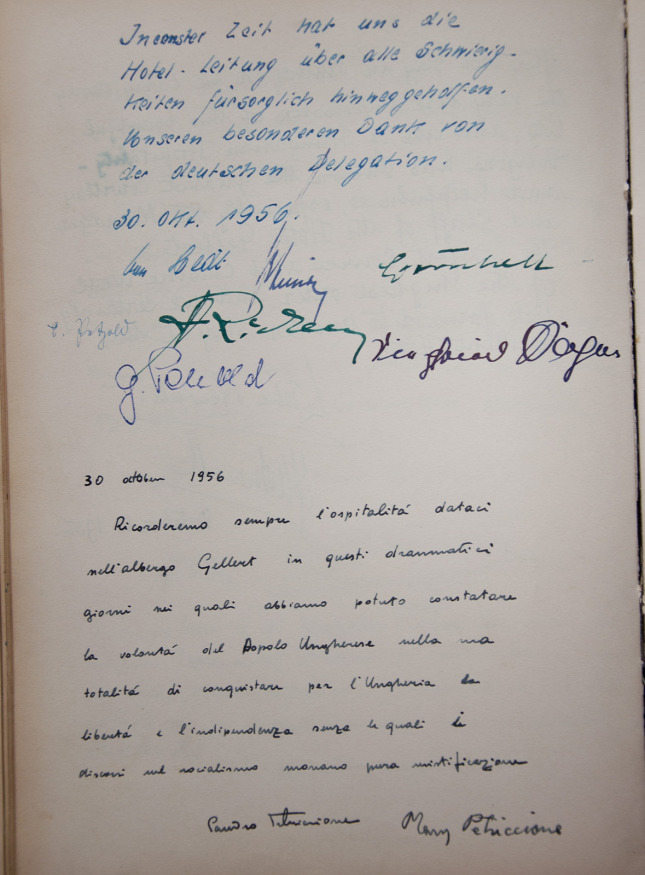 In ernster Zeit hat uns die
Hotel-Leitung über alle Schwierig-
keiten fürsorglich hinweggeholfen.
Unseren besonderen Dank von
der deutschen Delegation.
30. Okt. 1956.
30 ottobre 1956
Ricorderemo sempre l'ospitalitá dataci
nell'albergo Gellert in questi drammatici
giorni nei quali abbiamo potuto constatare
la volontá del Popolo Ungherese nella sua
totalitá di conquistare per l'Ungheria la
libertá e l'indipendenza senza le quali i
discorsi sul socialismo suonano pura mistificazione
Sandro Petriccione Mary Petriccione